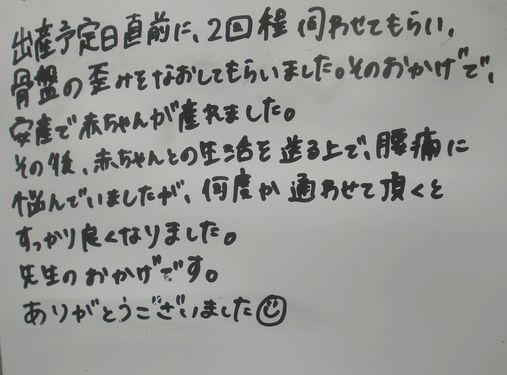 出産予定日直前に、2回程伺わせてもらい、
骨盤の歪みをなおしてもらいました。そのおかげで、
安産で赤ちゃんが産れました。
その後、赤ちゃんとの生活を送る上で、腰痛に
悩んでいましたが、何度か通わせて頂くと
すっかり良くなりました。
先生のおかげです。
ありがとうございました☺